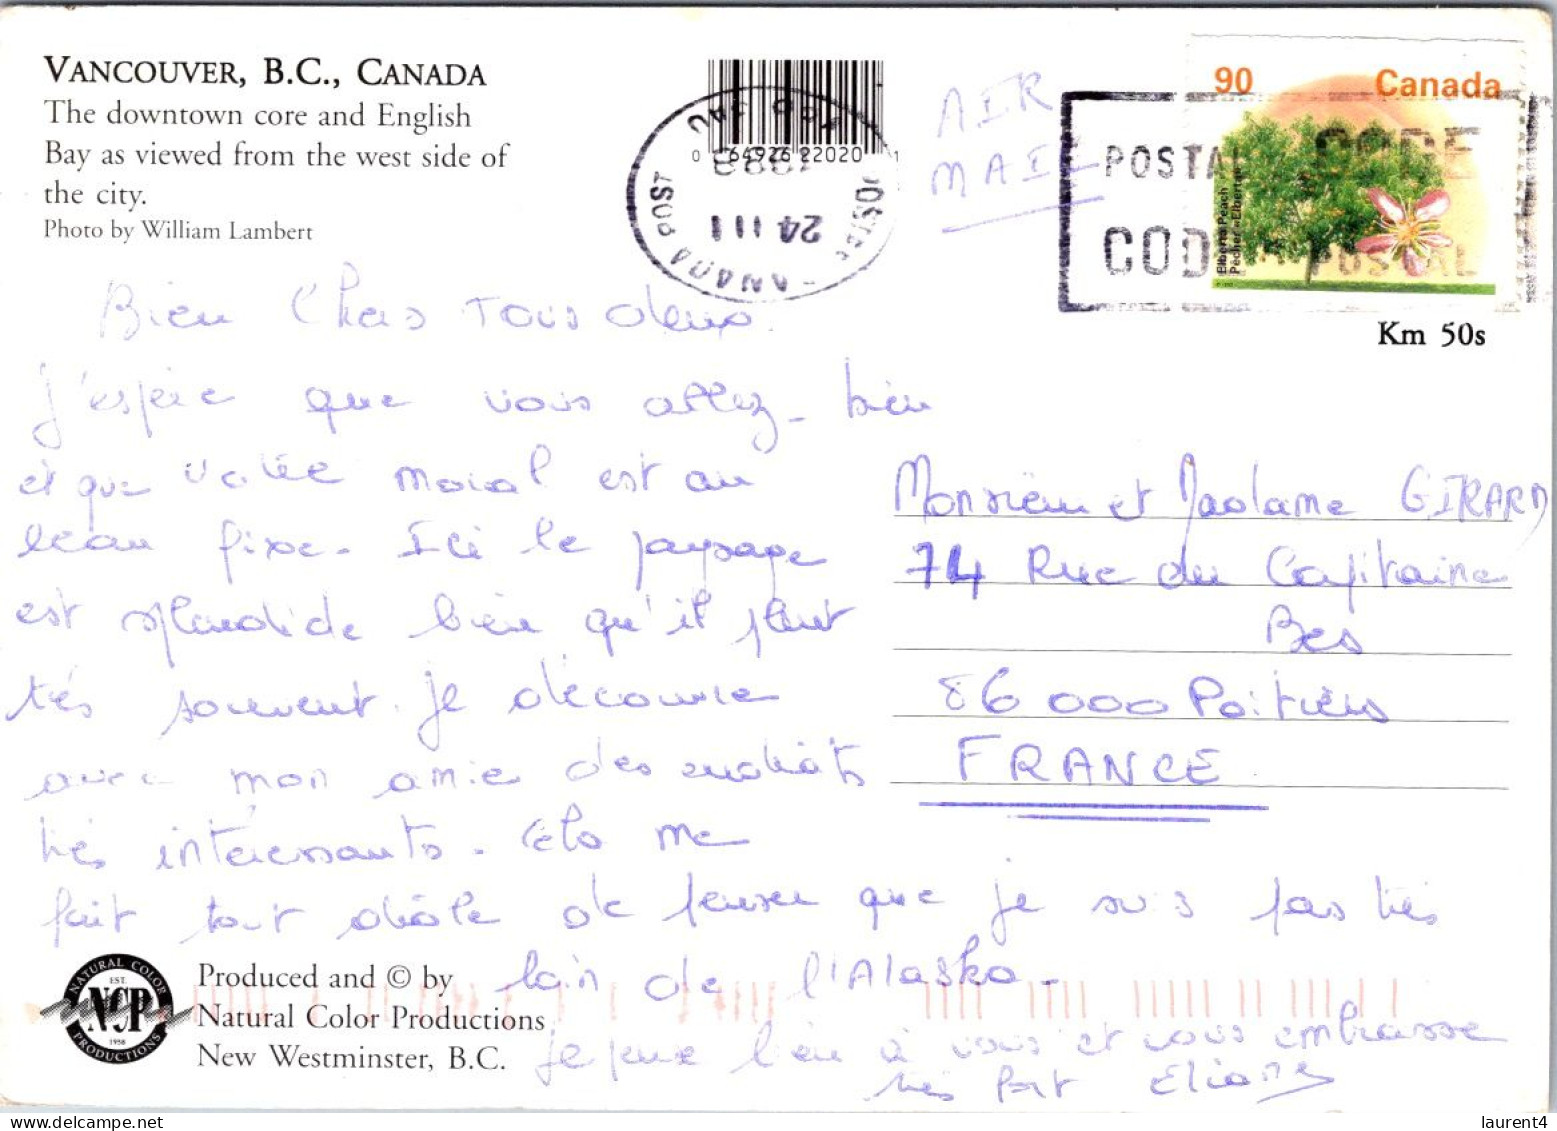 VANCOUVER, B.C., CANADA
The downtown core and English
Bay as viewed from the west side of
the city.
Photo by William Lambert
0 64926 22020 1
24 III
1998
AIR
MAIL
90 Canada
Elberta Peach
Pêcher « Elberta »
POSTAL CODE
CODE POSTAL
Km 50s
Bien Chers Tous deux.
J'espère que vous allez bien
et que votre moral est au
beau fixe. Ici le paysage
est splendide bien qu'il pleut
très souvent. Je découvre
avec mon amie des endroits
très intéressants. Cela me
fait tout drôle de penser que je suis pas très
loin de l'Alaska.
Je pense bien à vous et vous embrasse
très fort Eliane
Monsieur et Madame GIRARD
74 Rue du Capitaine
Bes
86 000 Poitiers
FRANCE
NATURAL COLOR
EST.
NCP
1958
PRODUCTIONS
Produced and © by
Natural Color Productions
New Westminster, B.C.
laurent4